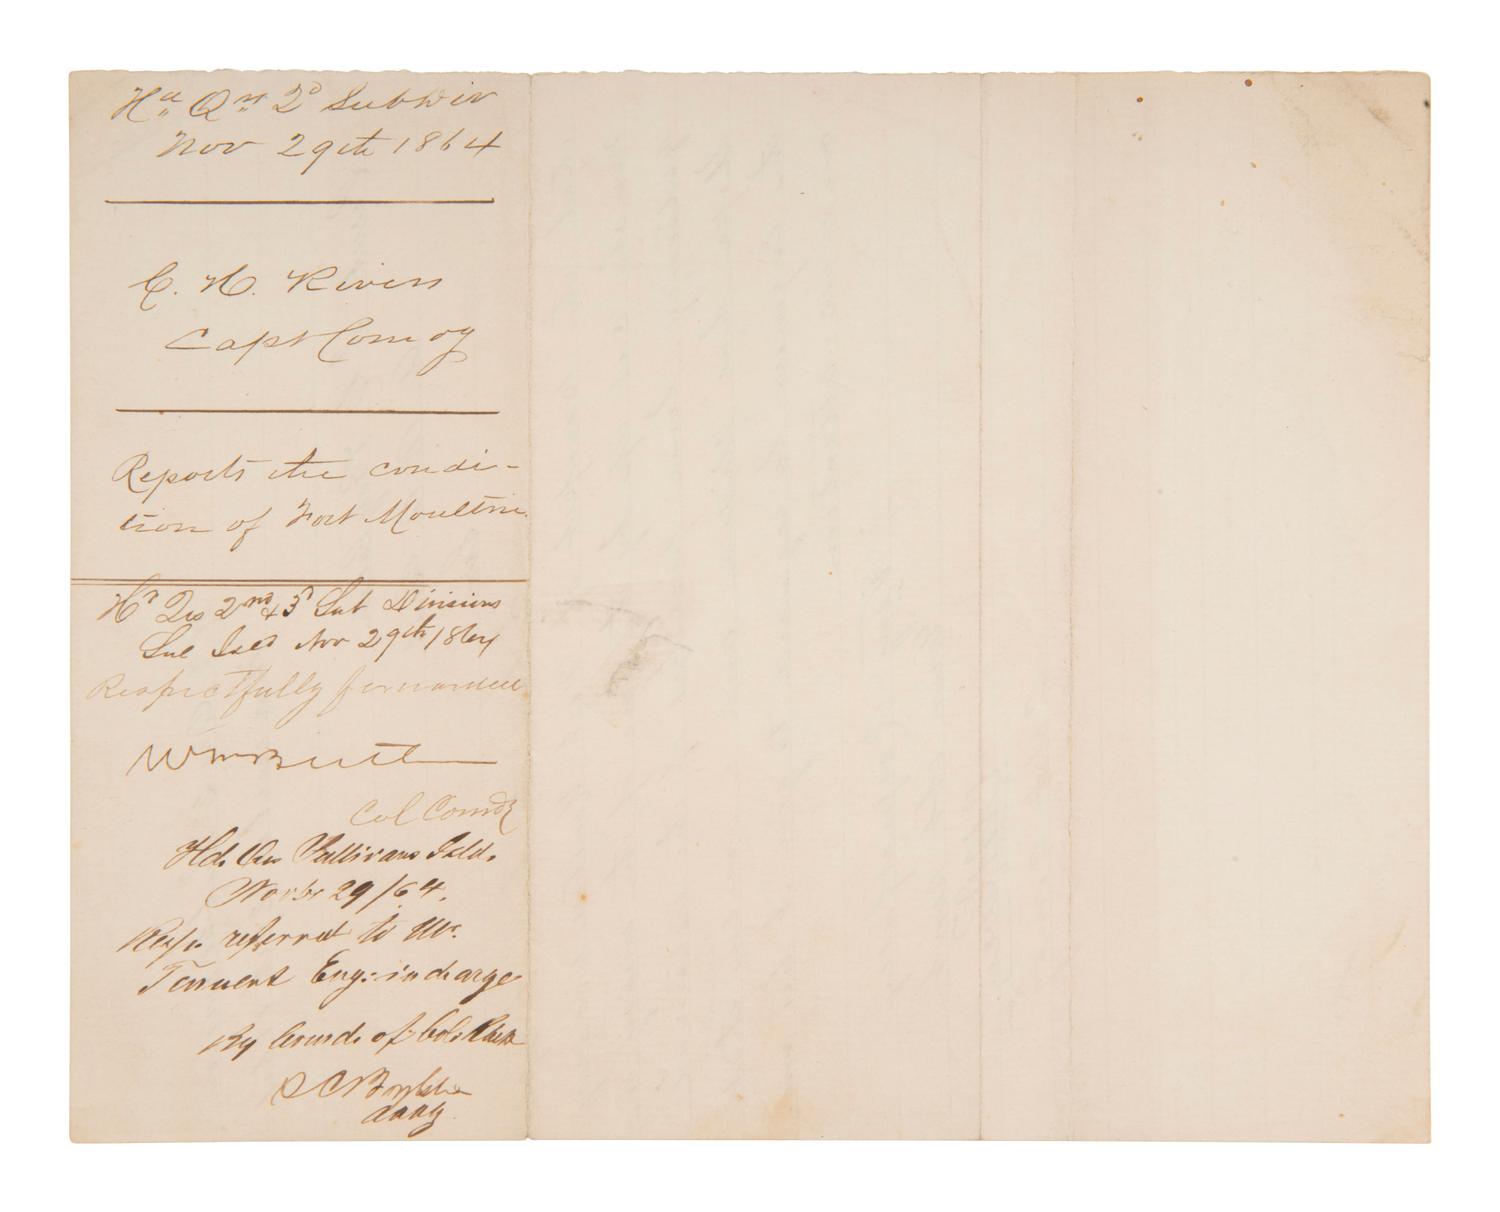 Hd Qrs 2d Sub Div
Nov 29th 1864
C. H. Rivers
Capt Comdg
Reports the condi-
tion of Fort Moultrie
Hd Qrs 2nd & 3d Sub Divisions
Sul Isld Nov 29th 1864
Respectfully forwarded
Wm Butler
Col Comdg
Hd. Qrs Sullivans Isld.
Novbr 29/64.
Resp. referred to Mr.
Tennent Eng: in charge
By Comd. of Col.
AAAG